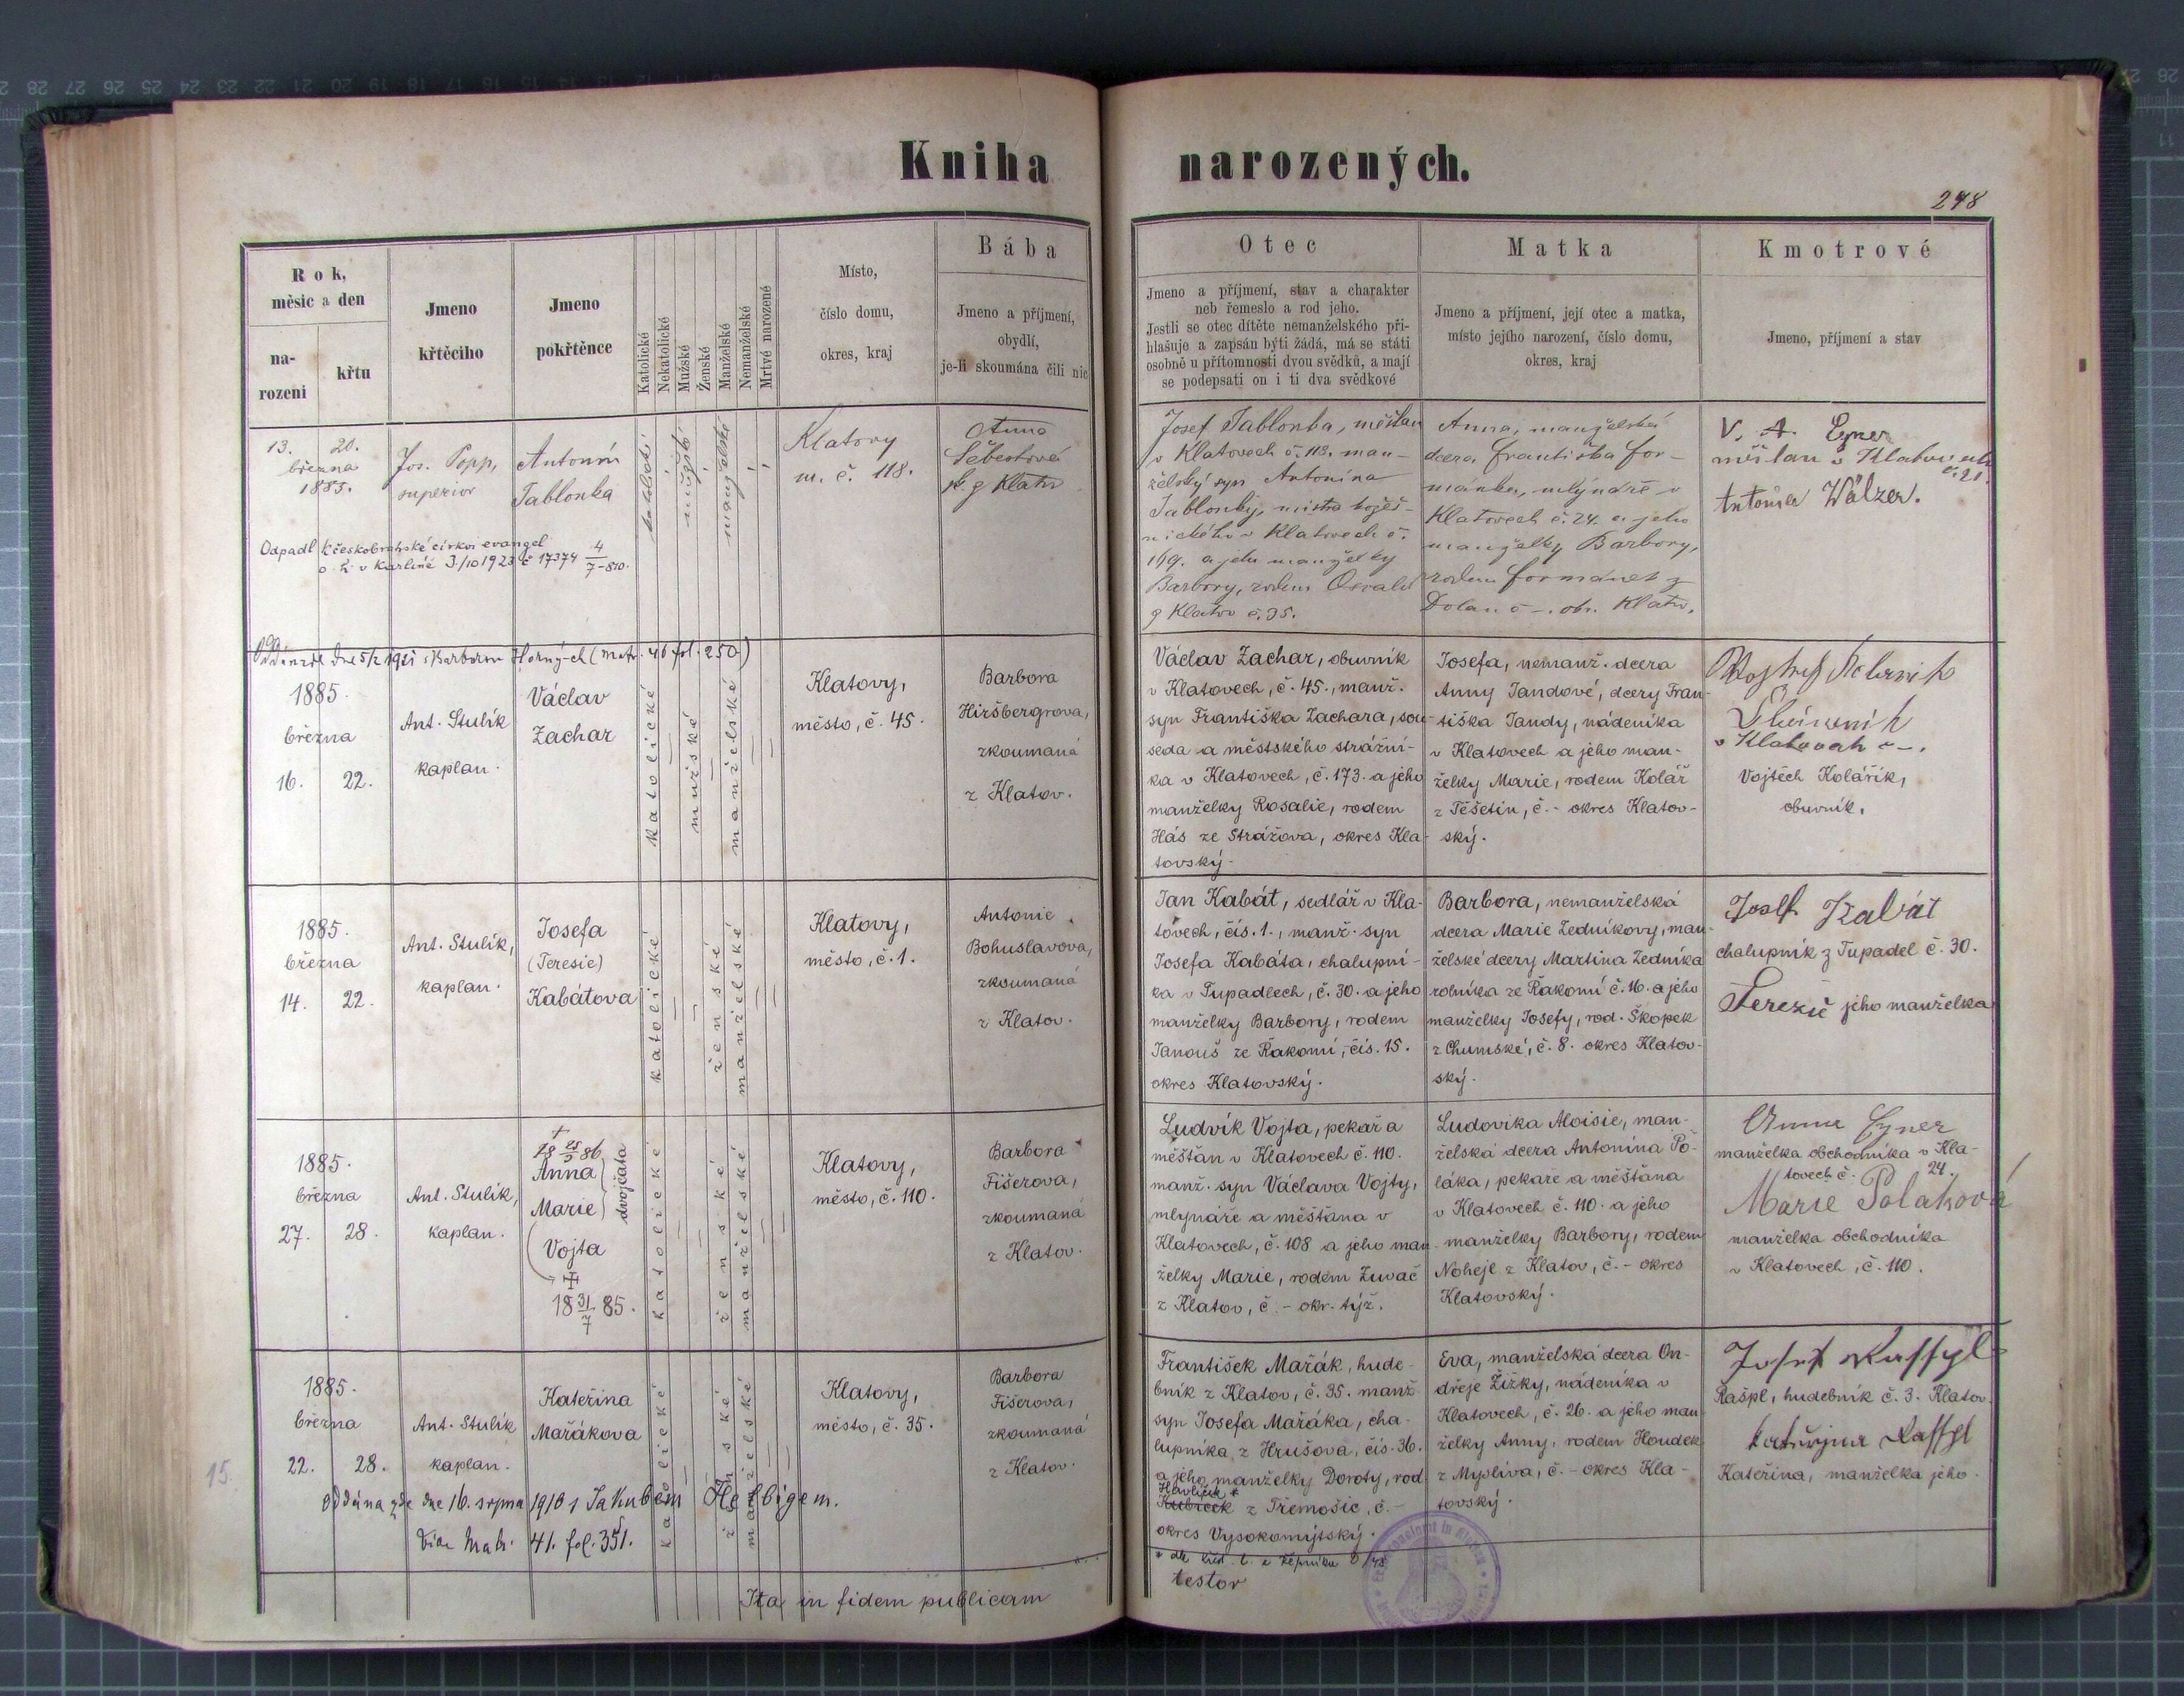 Kniha narozených.
248
Rok, měsíc a den
narození
křtu
Jmeno křtěcího
Jmeno pokřtěnce
Katolické
Nekatolické
Mužské
Ženské
Manželské
Nemanželské
Mrtvě narozené
Místo,
číslo domu,
okres, kraj
Bába
Jmeno a příjmení,
obydlí,
je-li skoumána čili nic
Otec
Jmeno a příjmení, stav a charakter
neb řemeslo a rod jeho.
Jestli se otec dítěte nemanželského při-
hlašuje a zapsán býti žádá, má se státi
osobně u přítomnosti dvou svědků, a mají
se podepsati on i ti dva svědkové
Matka
Jmeno a příjmení, její otec a matka,
místo jejího narození, číslo domu,
okres, kraj
Kmotrové
Jmeno, příjmení a stav
13. 20.
března
1885.
Jos. Popp,
superior
Antonín
Jablonka
katolické
mužské
manželské
Klatovy
m. č. 118.
Anna
Šebestová
zk. z Klatov
Odpadl k českobratrské církvi evangel.
v Karlíně 3/10 1923 č 17374
Josef Jablonka, měštan
v Klatovech č. 113. man-
želský syn Antonína
Jablonky, mistra
v Klatovech č.
169. a jeho manželky
Barbory, rodem Osvald
z Klatov č. 35.
Anna, manželská
dcera Františka For-
mánka, mlynáře v
Klatovech č. 24. a jeho
manželky Barbory,
rodem Formánek z
Dolan č -. okr. Klatov.
V. A. Egner
měšťan v Klatovech
č. 21.
Antonie Wälzer.
Oddán zde dne 5/2 1921 s Barborou Horných (matr. 46 fol. 250)
1885.
března
16. 22.
Ant. Stulík
kaplan.
Václav
Zachar
katolické
mužské
manželské
Klatovy,
město, č. 45.
Barbora
Hiršbergrova,
zkoumaná
z Klatov.
Václav Zachar, obuvník
v Klatovech, č. 45., manž.
syn Františka Zachara, sou-
seda a městského strážní-
ka v Klatovech, č. 173. a jeho
manželky Rosalie, rodem
Hás ze Strážova, okres Kla-
tovský.
Josefa, nemanž. dcera
Anny Jandové, dcery Fran-
tiška Jandy, nádeníka
v Klatovech a jeho man-
želky Marie, rodem Kolář
z Těšetin, č. - okres Klatov-
ský.
v Klatovech č -.
Vojtěch Kolářík,
obuvník.
1885.
března
14. 22.
Ant. Stulík,
kaplan.
Josefa
(Teresie)
Kabátova
katolické
ženské
manželské
Klatovy,
město, č. 1.
Antonie
Bohuslavova,
zkoumaná
z Klatov.
Jan Kabát, sedlář v Kla-
tovech, čís. 1., manž. syn
Josefa Kabáta, chalupní-
ka v Tupadlech, č. 30. a jeho
manželky Barbory, rodem
Janouš ze Řakomí, čís. 15.
okres Klatovský.
Barbora, nemanželská
dcera Marie Zedníkovy, man-
želské dcery Martina Zedníka
rolníka ze Řakomí č. 16. a jeho
manželky Josefy, rod. Škopek
z Chumské, č. 8. okres Klatov-
ský.
Josef Kabát
chalupník z Tupadel č. 30.
Terezie jeho manželka
1885.
března
27. 28.
Ant. Stulík,
kaplan.
Anna
Marie
dvojčata
Vojta
18 31/7 85.
katolické
ženské
manželské
Klatovy,
město, č. 110.
Barbora
Fišerova,
zkoumaná
z Klatov.
Ludvík Vojta, pekař a
měšťan v Klatovech č. 110.
manž. syn Václava Vojty,
mlynáře a měšťana v
Klatovech, č. 108 a jeho man-
želky Marie, rodem Zuvač
z Klatov, č. - okr. týž.
Ludovika Aloisie, man-
želská dcera Antonína Po-
láka, pekaře a měšťana
v Klatovech č. 110. a jeho
manželky Barbory, rodem
Nohejl z Klatov, č. - okres
Klatovský.
Anna Egner
manželka obchodníka v Kla-
tovech č. 24.
Marie Polaková
manželka obchodníka
v Klatovech, č. 110.
1885.
března
22. 28.
Ant. Stulík
kaplan.
Kateřina
Mařákova
katolické
ženské
manželské
Klatovy,
město, č. 35.
Barbora
Fišerova,
zkoumaná
z Klatov.
oddána zde dne 16. srpna 1910 s Jakubem Helbigem.
Vide Matr. 41. fol. 351.
František Mařák, hude-
bník z Klatov, č. 35. manž.
syn Josefa Mařáka, cha-
lupníka z Hrušova, čís. 36.
a jeho manželky Doroty, rod.
Havlíček *
Kubíček z Třemošic, č. -
okres Vysokomýtský.
Eva, manželská dcera On-
dřeje Žižky, nádeníka v
Klatovech, č. 26. a jeho man-
želky Anny, rodem Houdek
z Myslíva, č. - okres Kla-
tovský.
Josef Rasspl
Rašpl, hudebník č. 3. Klatov.
Kateřina, manželka jeho.
15.
Ita in fidem publicam
testor